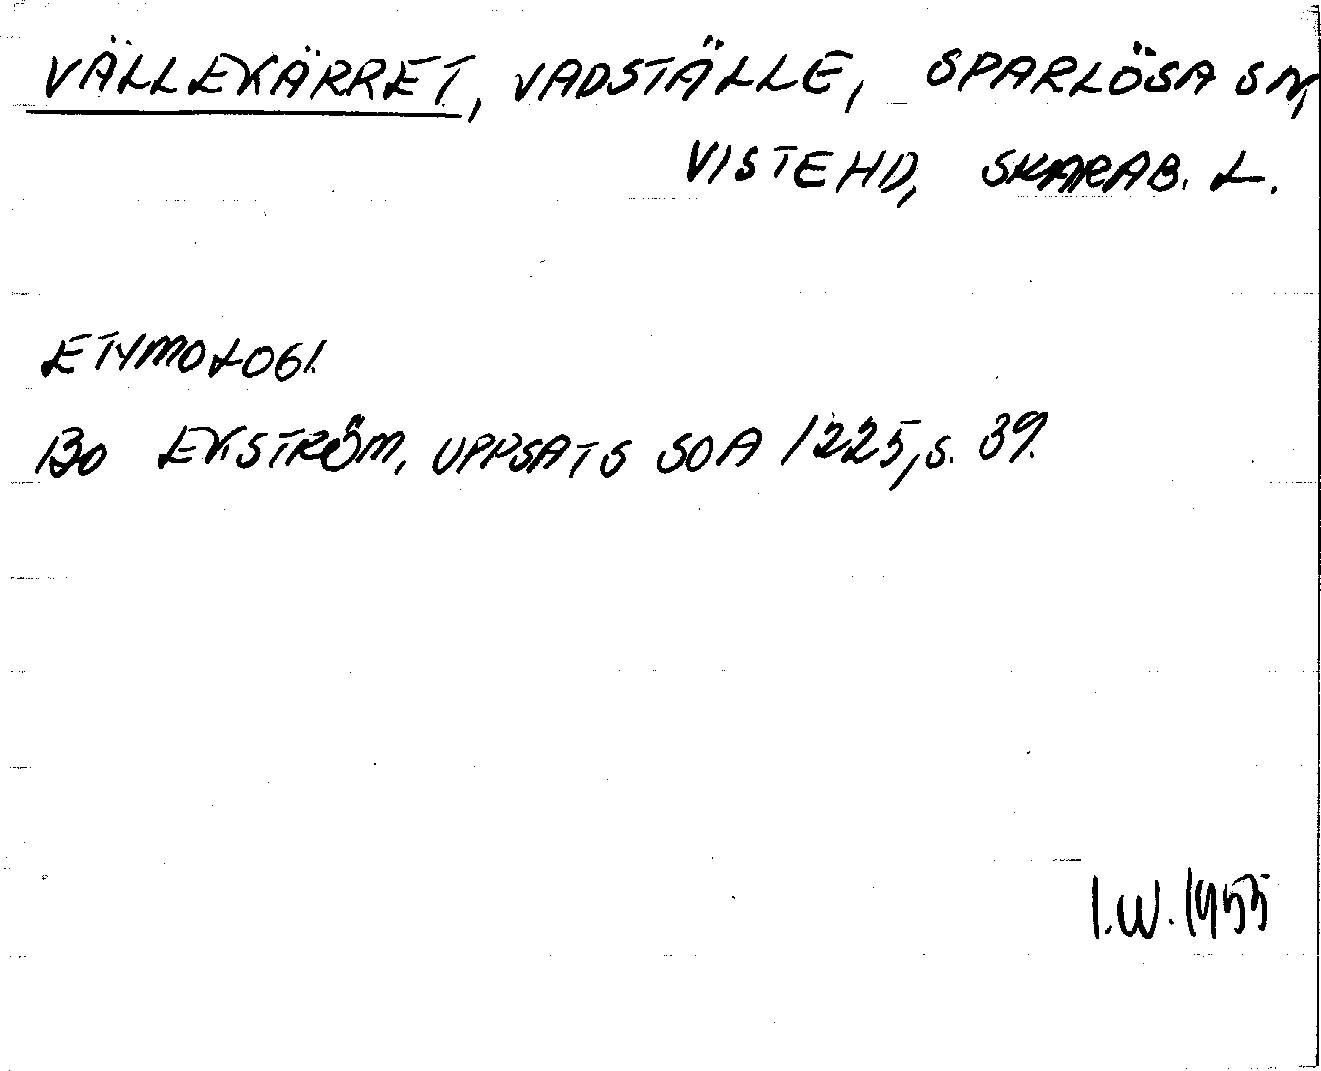 VÄLLEKÄRRET, VADSTÄLLE, SPARLÖSA SN,
VISTEHD, SKARAB. L.
ETYMOLOGI.
BO EKSTRÖM, UPPSATS SOA 1225, S. 39.
I.W. 1955